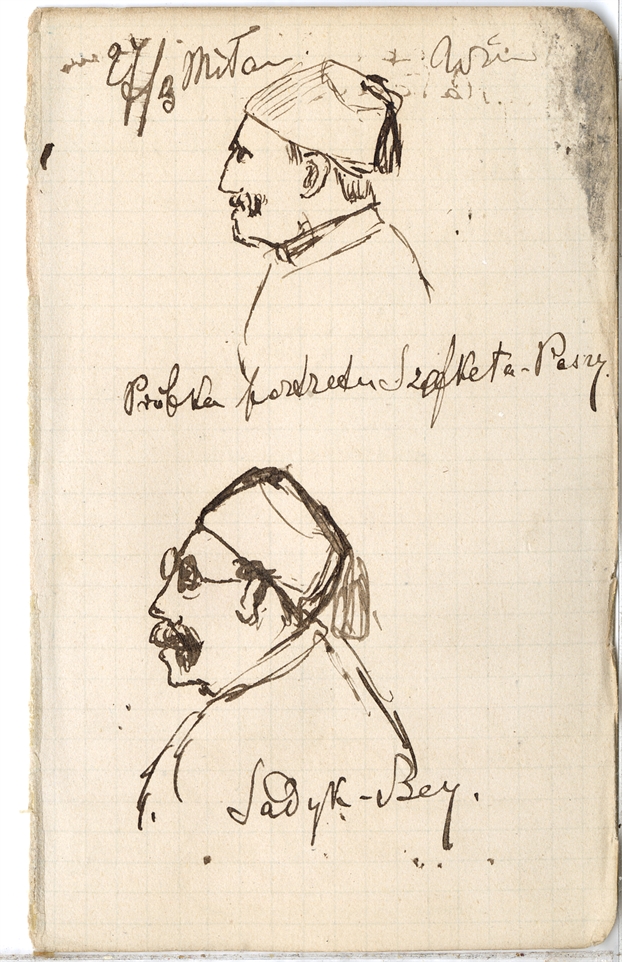 27/3
Próbka portretu Szefketa-Paszy.
Sadyk-Bey.